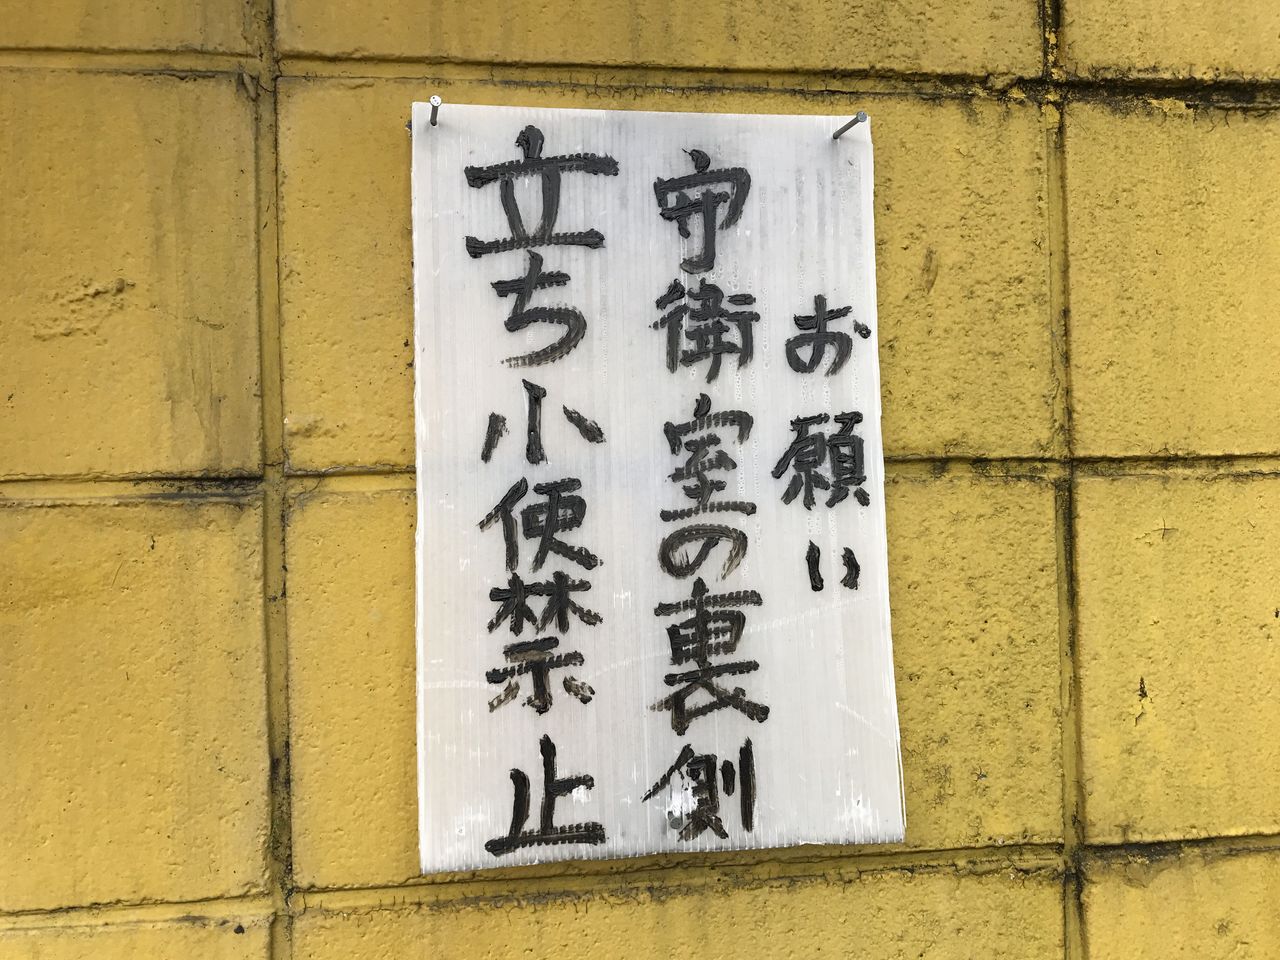 お願い
守衛室の裏側
立ち小便禁止